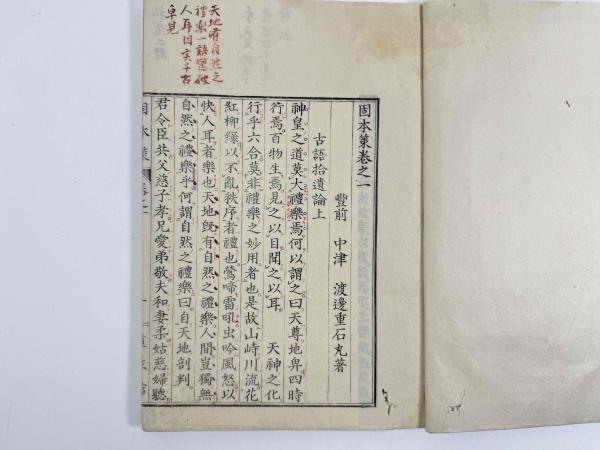 固本策巻之一
豐前　中津　渡邊重石丸著
古語拾遺論上
神皇之道莫大禮樂焉何以謂之曰天尊地卑四時
行焉百物生焉見之以目聞之以耳　天神之化
行乎六合莫非禮樂之妙用者也是故山峙川流花
紅柳緑以不亂秩序者禮也鶯啼雷吼虫吟風怒以
快人耳者樂也天地既有自然之禮樂人間豈獨無
自然之禮樂乎何謂自然之禮樂曰自天地剖判
君令臣共父慈子孝兄愛弟敬夫和妻柔姑慈婦聽
固本策
巻之一
一
天地有自然之
禮樂一語驚破
人耳目実千古
卓見